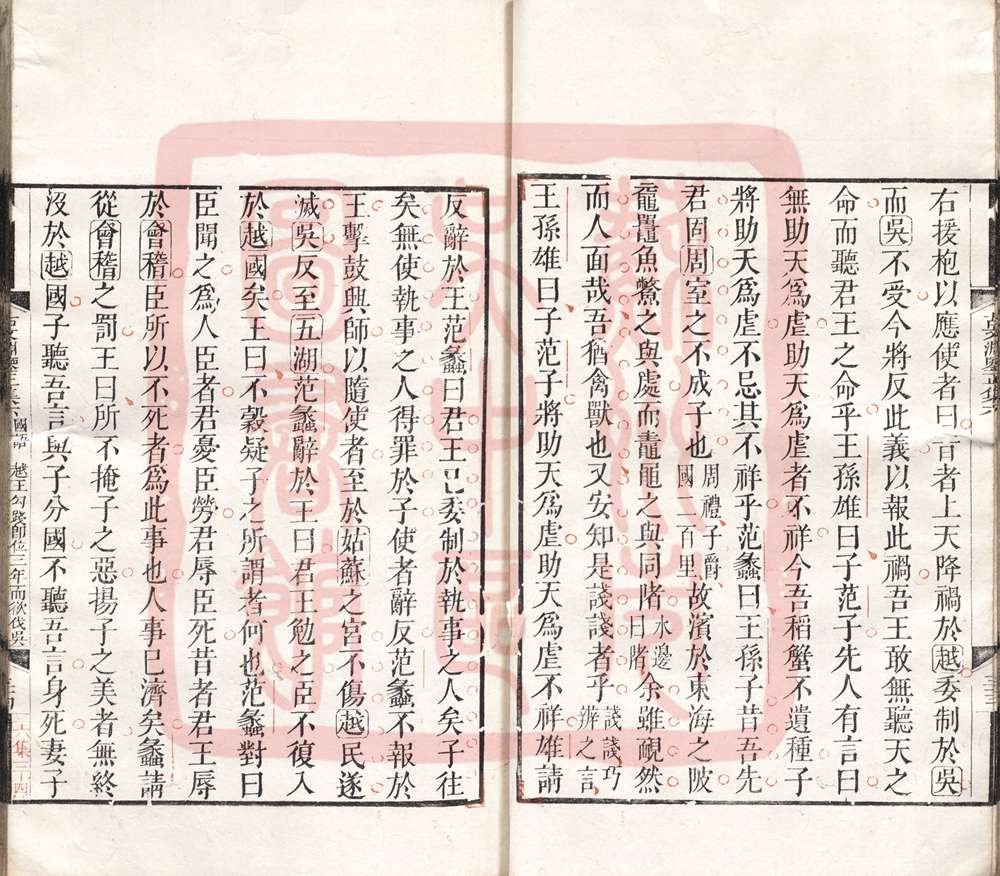 右援枹以應使者曰昔者上天降禍於越委制於吳
而吳不受今將反此義以報此禍吾王敢無聽天之
命而聽君王之命乎王孫雄曰子范子先人有言曰
無助天爲虐助天爲虐者不祥今吾稻蟹不遺種子
將助天爲虐不忌其不祥乎范蠡曰王孫子昔吾先
君固周室之不成子也周禮子爵國百里故濱於東海之陂
黿鼉魚鼈之與處而鼃黽之與同陼水邊曰陼余雖靦然
而人面哉吾猶禽獸也又安知是諓諓者乎諓諓巧辨之言
王孫雄曰子范子將助天爲虐助天爲虐不祥雄請
反辭於王范蠡曰君王已委制於執事之人矣子往
矣無使執事之人得罪於子使者辭反范蠡不報於
王擊鼓興師以隨使者至於姑蘇之宮不傷越民遂
滅吳反至五湖范蠡辭於王曰君王勉之臣不復入
於越國矣王曰不穀疑子之所謂者何也范蠡對曰
臣聞之爲人臣者君憂臣勞君辱臣死昔者君王辱
於會稽臣所以不死者爲此事也人事已濟矣蠡請
從會稽之罰王曰所不掩子之惡揚子之美者無終
沒於越國子聽吾言與子分國不聽吾言身死妻子
國語 越王勾踐卽位三年而欲伐吳